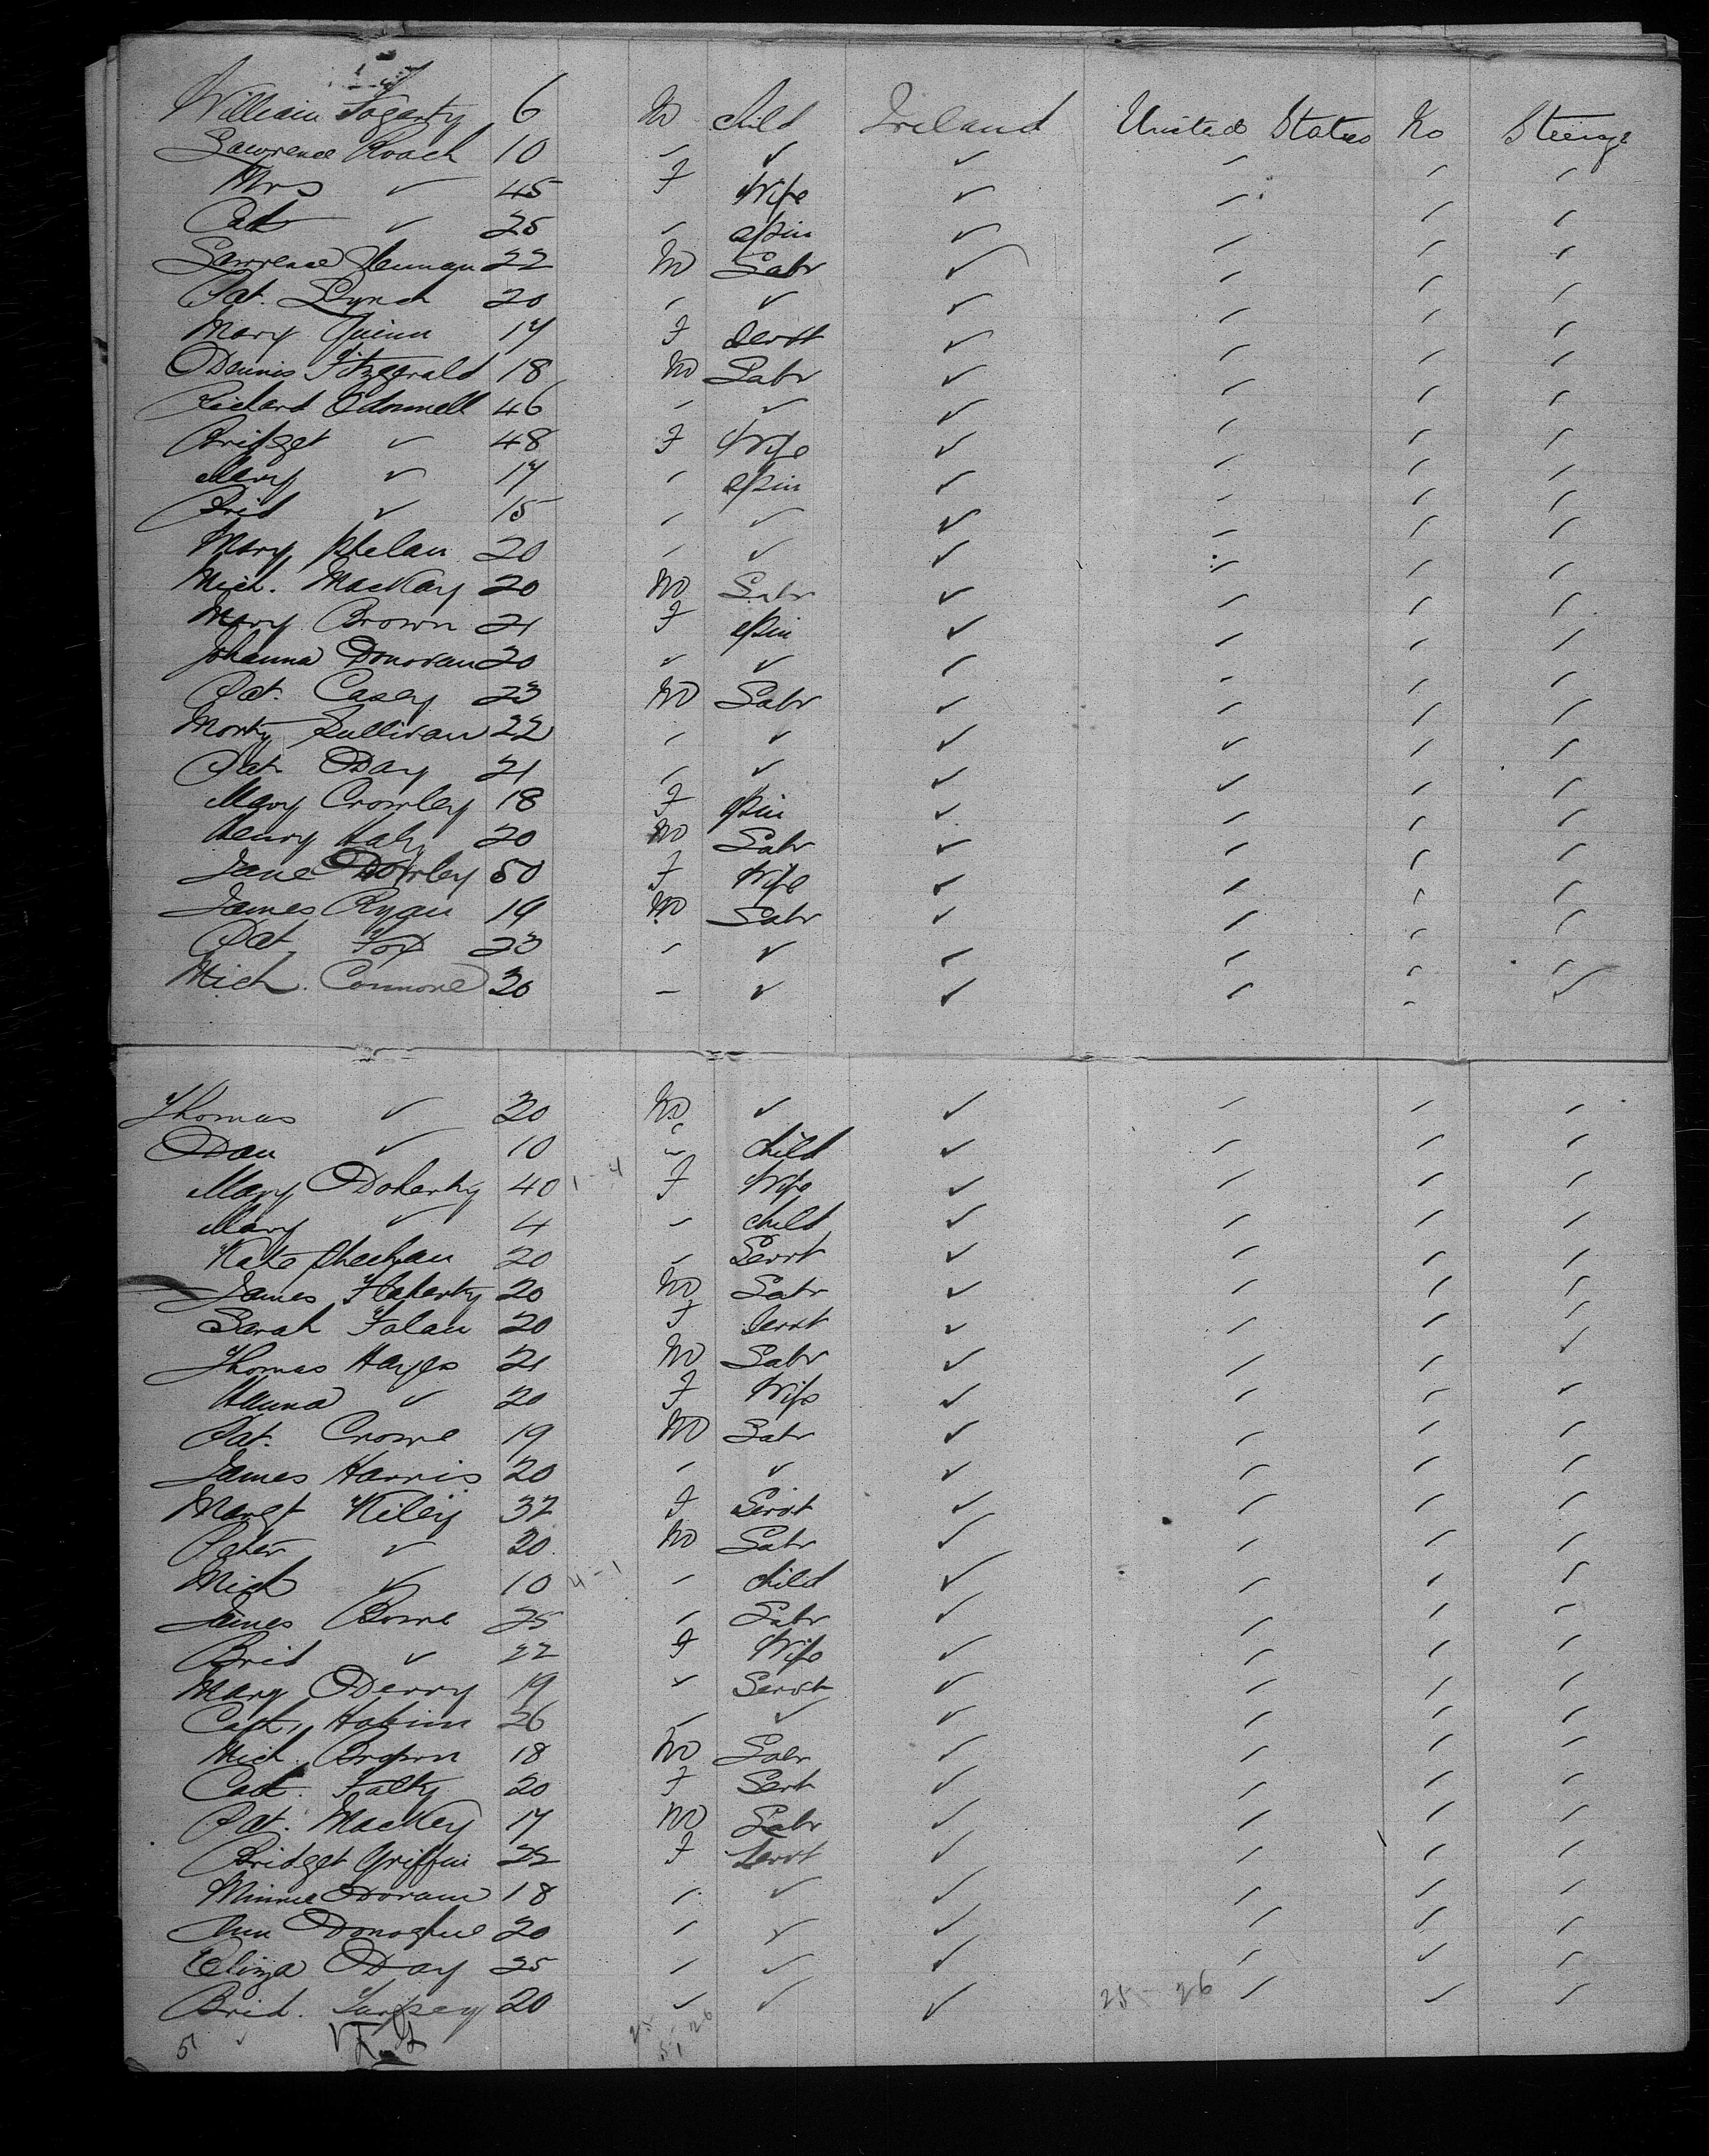 William Fogarty 6 M child Ireland United States No Steerage
Lawrence Roach 10 " ✓ ✓ " " "
Mrs ✓ 45 F Wife ✓ " " "
Cath ✓ 25 " Spin ✓ " " "
Lawrence 22 M Labr ✓ " " "
Pat. Lynch 20 " ✓ ✓ " " "
Mary Quinn 17 F Servt ✓ " " "
Dennis Fitzgerald 18 M Labr ✓ " " "
Richard Odonnell 46 " ✓ ✓ " " "
Bridget ✓ 48 F Wife ✓ " " "
Mary ✓ 17 " Spin ✓ " " "
Brid ✓ 15 " ✓ ✓ " " "
Mary Phelan 20 " ✓ ✓ " " "
Mich. MacKay 20 M Labr ✓ " " "
Mary Brown 21 F Spin ✓ " " "
Johanna Donovan 20 " ✓ ✓ " " "
Pat. Casey 23 M Labr ✓ " " "
Morty Sullivan 22 " ✓ ✓ " " "
Pat Day 21 " ✓ ✓ " " "
Mary Crowley 18 F Spin ✓ " " "
Henry 20 M Labr ✓ " " "
Jane 50 F Wife ✓ " " "
James Ryan 19 M Labr ✓ " " "
Pat Fox 23 " ✓ ✓ " " "
Mich. Connore 20 " ✓ ✓ " " "
Thomas ✓ 20 M ✓ ✓ " " "
Dan ✓ 10 " child ✓ " " "
Mary Doherty 40 1-4 F Wife ✓ " " "
Mary ✓ 4 " child ✓ " " "
Kate Sheehan 20 " Servt ✓ " " "
James Flaherty 20 M Labr ✓ " " "
Sarah Folan 20 F Servt ✓ " " "
Thomas Hayes 21 M Labr ✓ " " "
Hanna ✓ 20 F Wife ✓ " " "
Pat. Crowe 19 M Labr ✓ " " "
James Harris 20 " ✓ ✓ " " "
Margt Kiley 32 F Servt ✓ " " "
Peter ✓ 20 M Labr ✓ " " "
Mich ✓ 10 4-1 " child ✓ " " "
James Bowe 25 " Labr ✓ " " "
Brid ✓ 22 F Wife ✓ " " "
Mary Derry 19 " Servt ✓ " " "
Cath. 26 " ✓ ✓ " " "
Mich. Brown 18 M Labr ✓ " " "
Cath. Falty 20 F Servt ✓ " " "
Pat. Mackey 17 M Labr ✓ " " "
Bridget Griffin 22 F Servt ✓ " " "
Minnie Doran 18 " ✓ ✓ " " "
Ann Donoghue 20 " ✓ ✓ " " "
Eliza Day 25 " ✓ ✓ " " "
Brid. 20 " ✓ ✓ 25-26 " " "
51 25-26
51